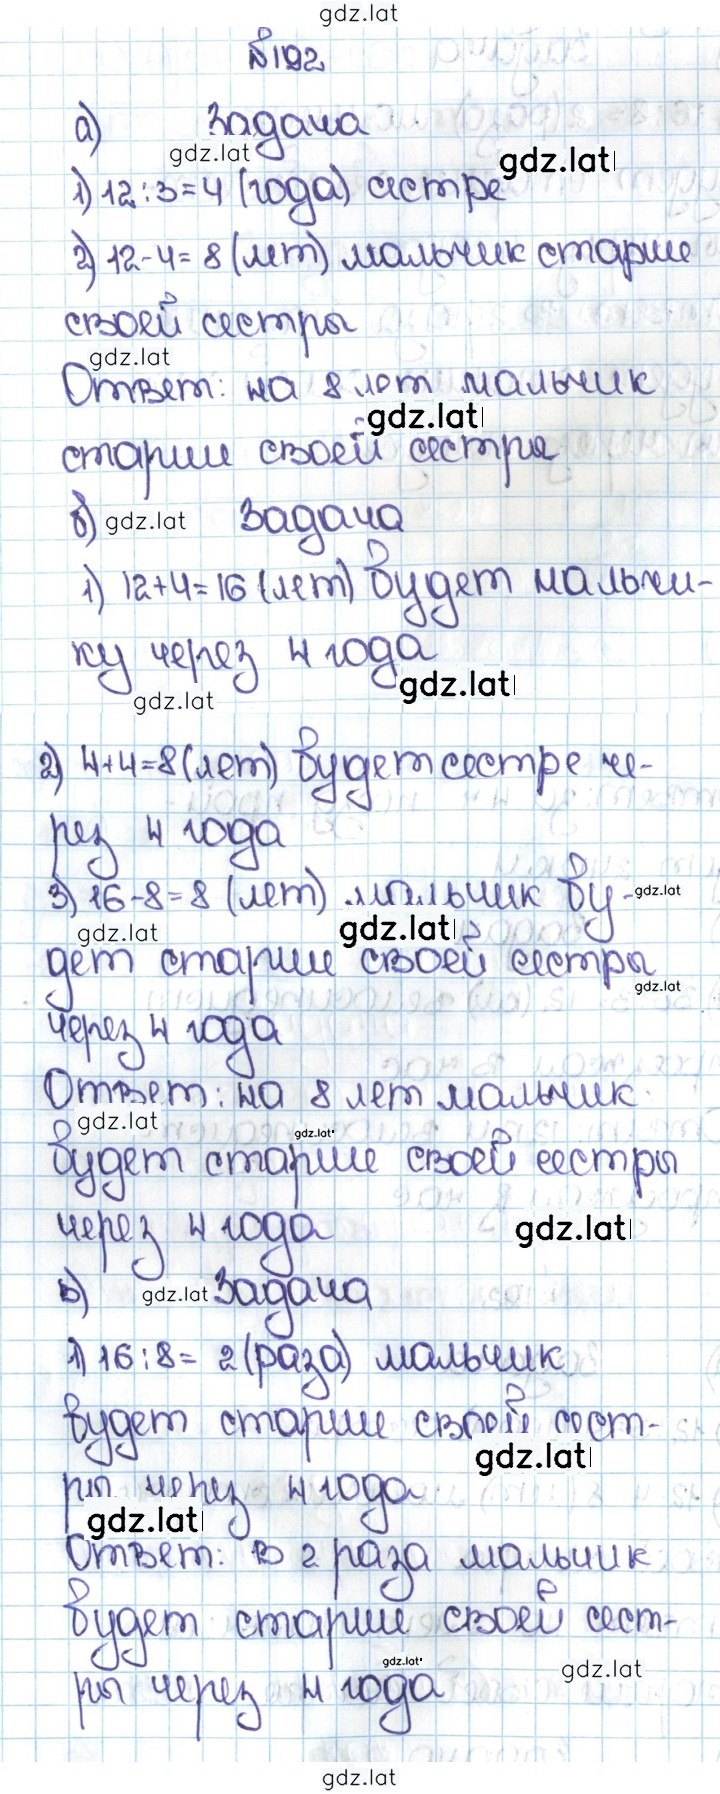 gdz.lat
№192
а) Задача
gdz.lat gdz.lat
1) 12:3=4 (года) сестре
2) 12-4=8 (лет) мальчик старше
своей сестры
gdz.lat
Ответ: на 8 лет мальчик
gdz.lat
старше своей сестры
б) gdz.lat Задача
1) 12+4=16 (лет) будет мальчи-
ку через 4 года
gdz.lat gdz.lat
2) 4+4=8 (лет) будет сестре че-
рез 4 года
3) 16-8=8 (лет) мальчик бу- gdz.lat
gdz.lat gdz.lat
дет старше своей сестры
gdz.lat
через 4 года
Ответ: на 8 лет мальчик
gdz.lat gdz.lat
будет старше своей сестры
через 4 года gdz.lat
в) gdz.lat Задача
1) 16:8= 2 (раза) мальчик
будет старше своей сест-
gdz.lat
ры через 4 года
gdz.lat
Ответ: в 2 раза мальчик
будет старше своей сест-
gdz.lat gdz.lat
ры через 4 года
gdz.lat